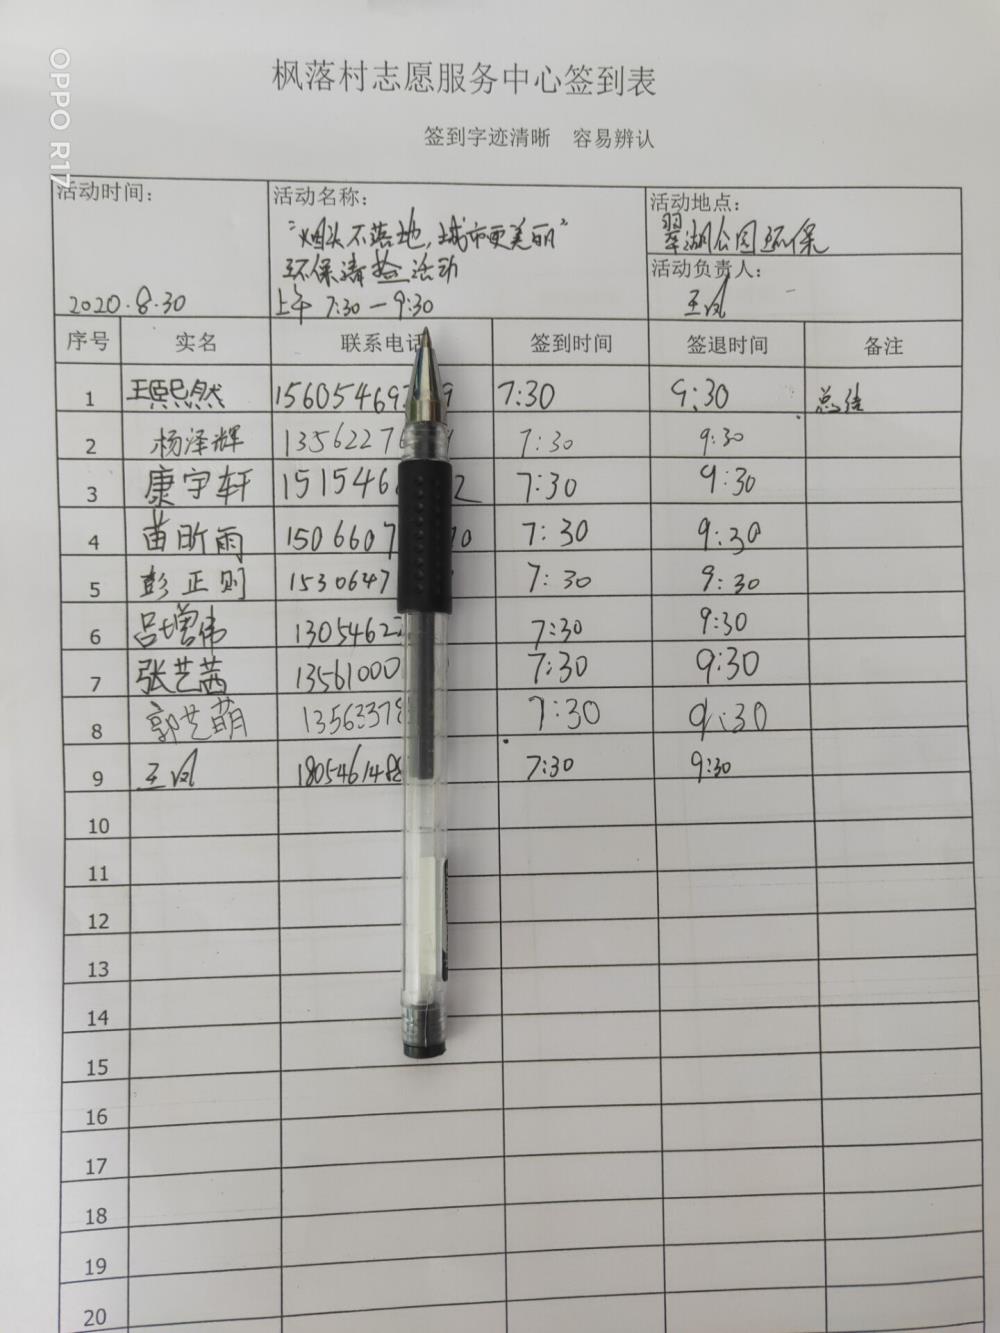 OPPO R17
枫落村志愿服务中心签到表
签到字迹清晰 容易辨认
活动时间：
2020.8.30
活动名称：
"烟头不落地，城市更美丽"
环保清捡活动
上午 7:30—9:30
活动地点：
翠湖公园环保
活动负责人：
王凤
序号 实名 联系电话 签到时间 签退时间 备注
1 王熙然 15605469 9 7:30 9:30 总结
2 杨泽辉 1356227 7:30 9:30
3 康宇轩 1515466 2 7:30 9:30
4 苗昕雨 1506607 10 7:30 9:30
5 彭正则 1530647 7:30 9:30
6 吕增伟 1305462 7:30 9:30
7 张艺茜 13561000 7:30 9:30
8 郭艺萌 1356337 7:30 9:30
9 王凤 180546148 7:30 9:30
10
11
12
13
14
15
16
17
18
19
20